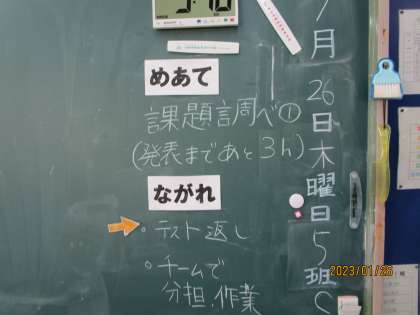 月26日木曜日5班C
めあて
課題調べ①
(発表まであと3h)
ながれ
・テスト返し
・チームで
分担、作業
2023/01/26